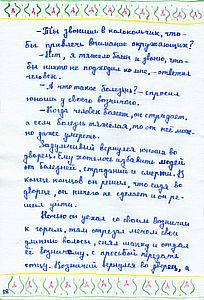 – Ты звонишь в колокольчик, что-
бы привлечь внимание окружающих?
– Нет, я тяжело болен и звоню, что-
бы никто не подходил ко мне, – ответил
человек.
– А что такое болезнь? – спросил
юноша у своего возничего.
– Когда человек болеет, он страдает,
а если болезнь тяжелая, то от неё мож-
но даже умереть.
Задумчивый вернулся юноша во
дворец. Ему хотелось избавить людей
от болезней, страданий и смерти. В
конце концов он решил, что сидя во
дворце, он ничего не сделает и он ре-
шил уйти.
Ночью он уехал со своим возничим
к горам, там отрезал мечом свои
длинные волосы, снял шапку и отдал
её возничему, с просьбой передать
отцу. Возничий вернулся во дворец, а